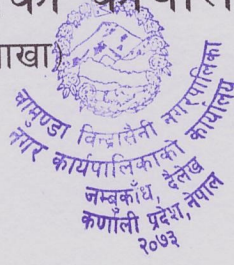 का कार्या
ाखा)
चामुण्डा विन्द्रासैनी नगरपालिका
नगर कार्यपालिकाको कार्यालय
जम्बुकाँध, दैलेख
कर्णाली प्रदेश, नेपाल
२०७३